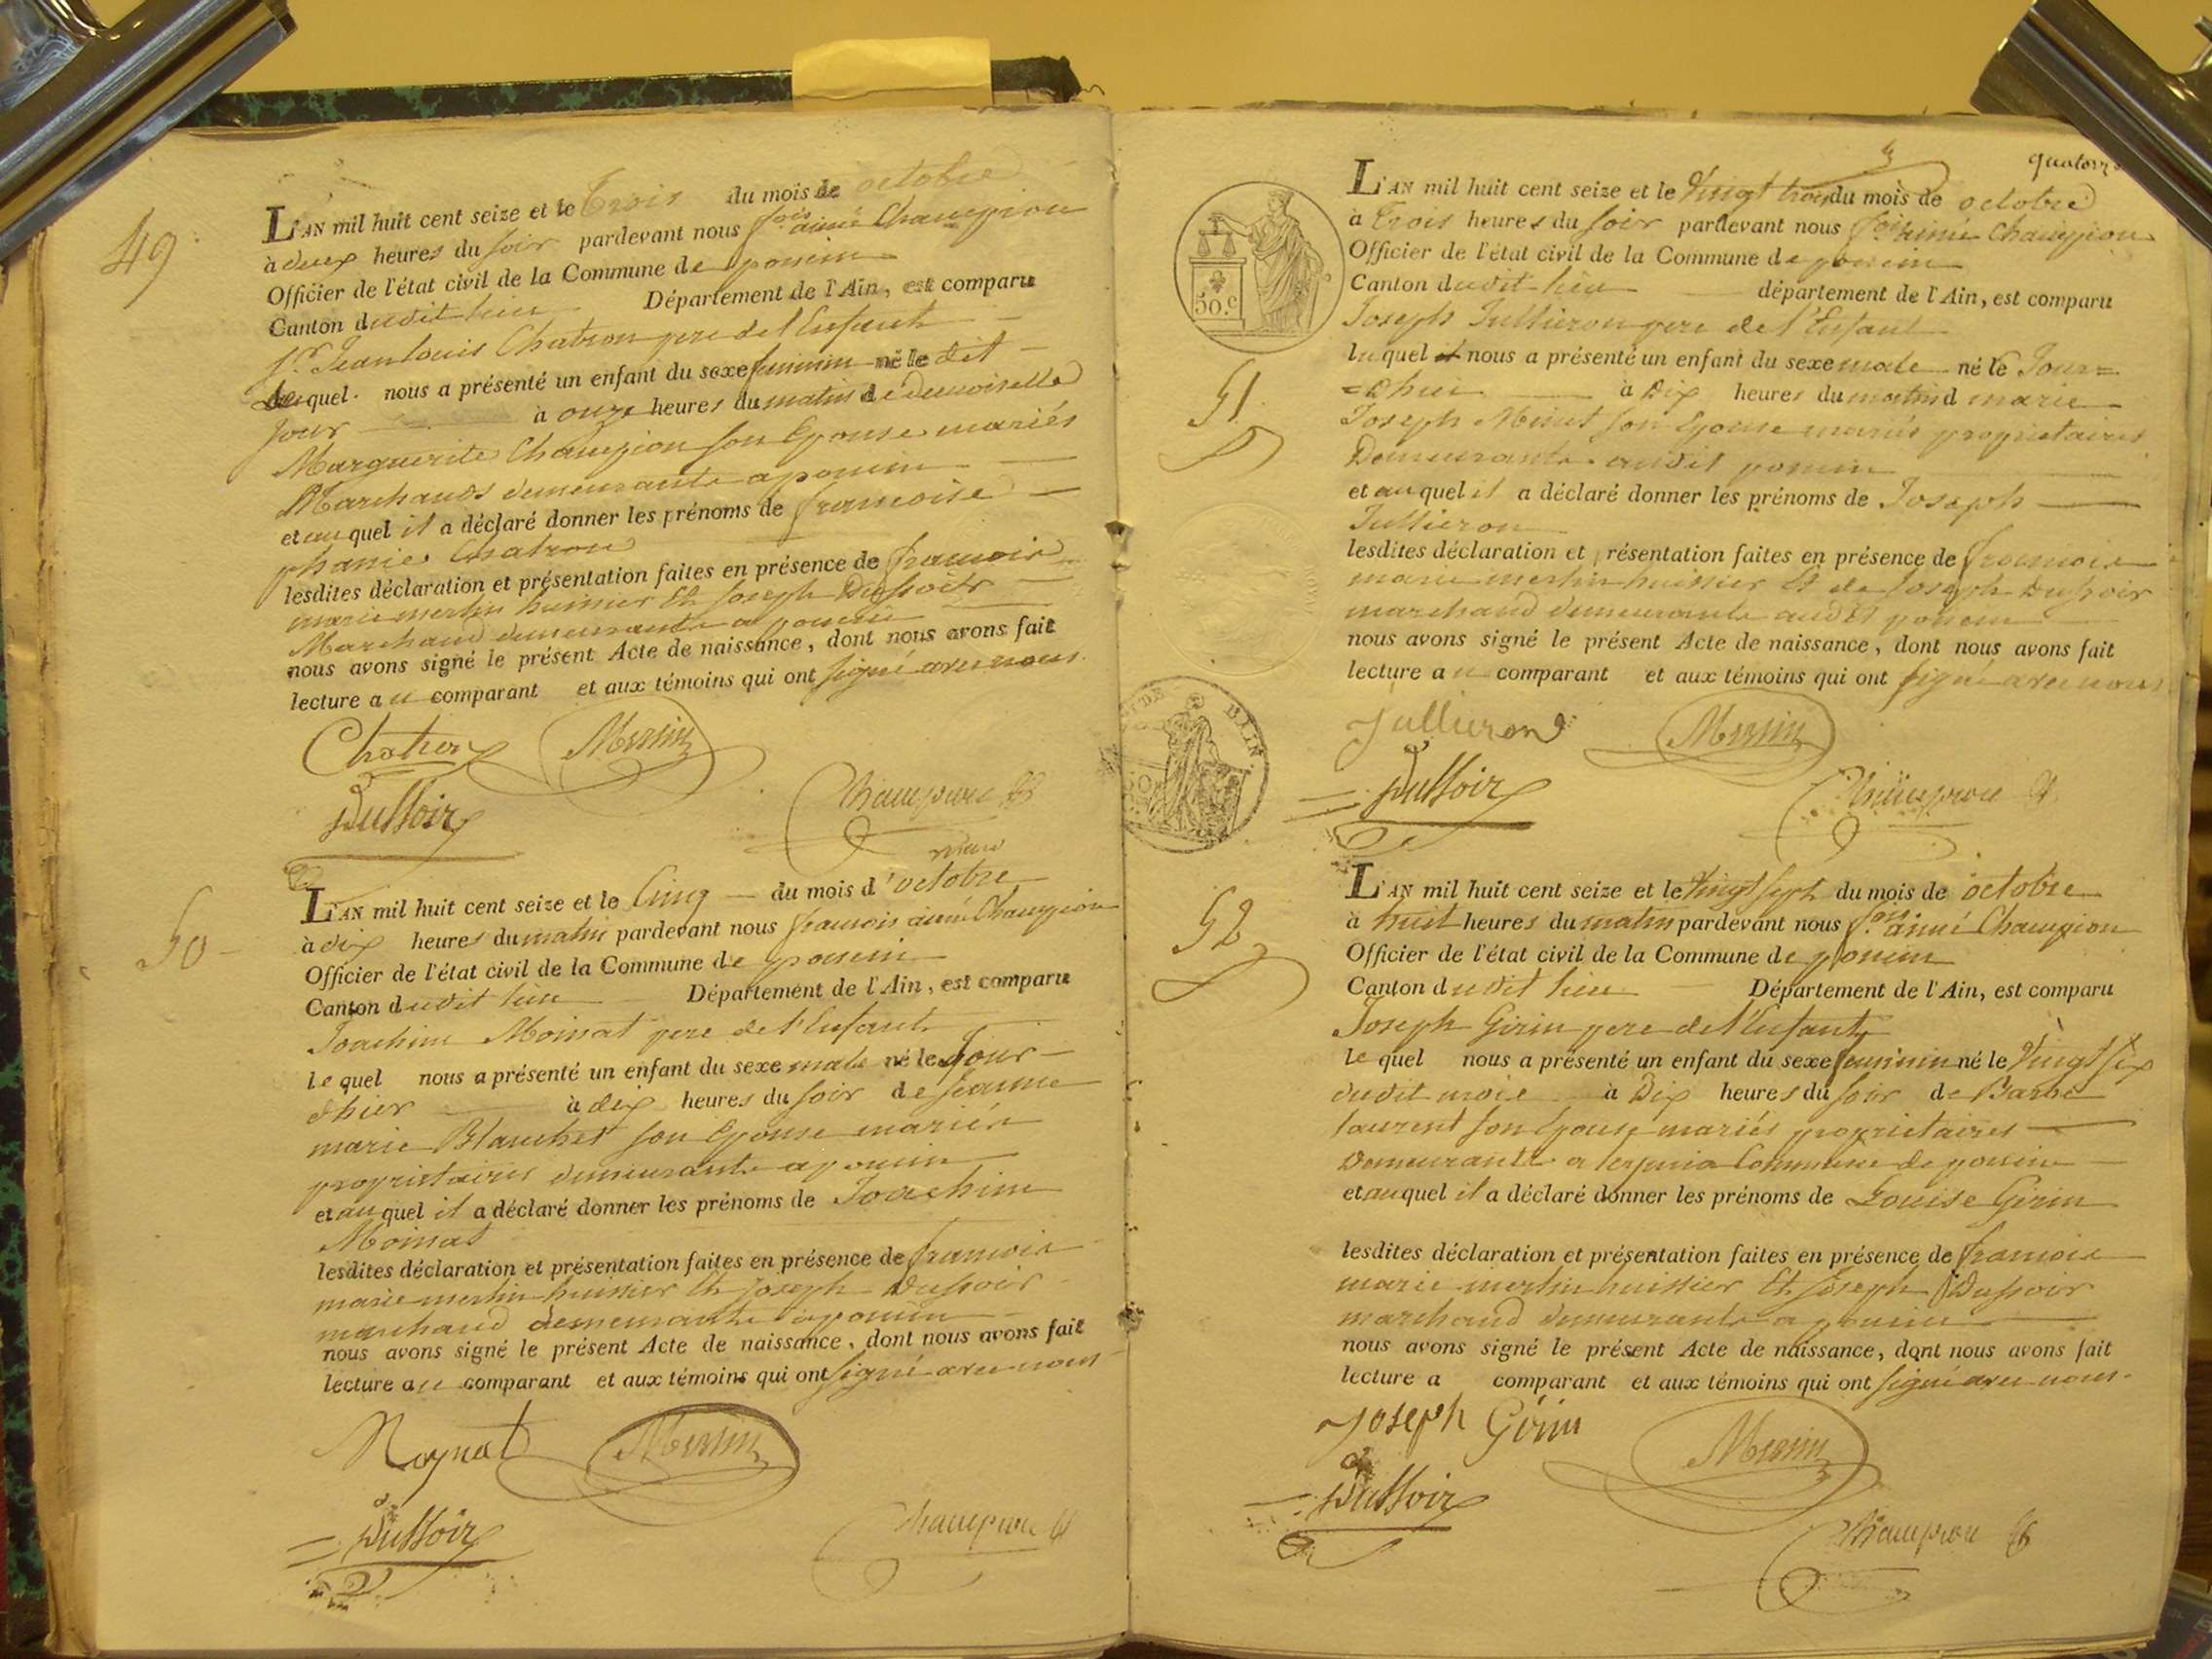 49
L'AN mil huit cent seize et le Trois du mois de octobre
à deux heures du soir pardevant nous fois aimé Champion
Officier de l'état civil de la Commune de poncin
Canton dudit lieu Département de l'Ain, est comparu
Sr. Jean louis Chatron pere de l'Enfant
lequel nous a présenté un enfant du sexe feminin né le dit
jour à onze heures du matin de demoiselle
Marguerite Champion son Epouse mariés
Marchands demeurants a poncin
et auquel il a déclaré donner les prénoms de francoise
phanie Chatron
lesdites déclaration et présentation faites en présence de francois
marie merlin huissier Et Joseph Dussoir
Marchand demeurants a poncin
nous avons signé le présent Acte de naissance, dont nous avons fait
lecture au comparant et aux témoins qui ont signé avec nous.
Chatron Merlin
Dussoir Champion
maire
50
L'AN mil huit cent seize et le Cinq du mois d'octobre
à dix heures du matin pardevant nous francois aimé Champion
Officier de l'état civil de la Commune de poncin
Canton dudit lieu Département de l'Ain, est comparu
Joachim Moinat pere de l'Enfant
lequel nous a présenté un enfant du sexe male né le jour
d'hier à dix heures du soir de jeanne
marie Blanchet son Epouse mariés
proprietaires demeurants a poncin
et auquel il a déclaré donner les prénoms de Joachim
Moinat
lesdites déclaration et présentation faites en présence de francois
marie merlin huissier Et Joseph Dussoir
marchand demeurants a poncin
nous avons signé le présent Acte de naissance, dont nous avons fait
lecture au comparant et aux témoins qui ont signé avec nous
Moynat Merlin
Dussoir Champion
quatorze
50.c
51
L'AN mil huit cent seize et le Vingt trois du mois de octobre
à Trois heures du soir pardevant nous fois aimé Champion
Officier de l'état civil de la Commune de poncin
Canton dudit lieu département de l'Ain, est comparu
Joseph Jullieron pere de l'Enfant
lequel nous a présenté un enfant du sexe male né le Jour=
=dhui à Dix heures du matin d marie
Joseph son Epouse mariés proprietaires
Demeurants audit poncin
et auquel il a déclaré donner les prénoms de Joseph
Jullieron
lesdites déclaration et présentation faites en présence de francois
marie merlin huissier Et de Joseph Dussoir
marchand demeurants audit poncin
nous avons signé le présent Acte de naissance, dont nous avons fait
lecture au comparant et aux témoins qui ont signé avec nous
Jullieron Merlin
Dussoir Champion
52
L'AN mil huit cent seize et le Vingt sept du mois de octobre
à huit heures du matin pardevant nous fois aimé Champion
Officier de l'état civil de la Commune de poncin
Canton dudit lieu Département de l'Ain, est comparu
Joseph Girin pere de l'Enfant
lequel nous a présenté un enfant du sexe feminin né le Vingt six
dudit mois à Dix heures du soir de Barbe
laurent son Epouse mariés proprietaires
Demeurants a Commune de poncin
et auquel il a déclaré donner les prénoms de Louise Girin
lesdites déclaration et présentation faites en présence de francois
marie merlin huissier Et Joseph Dussoir
marchand demeurants a poncin
nous avons signé le présent Acte de naissance, dont nous avons fait
lecture a comparant et aux témoins qui ont signé avec nous.
Joseph Girin Merlin
Dussoir Champion